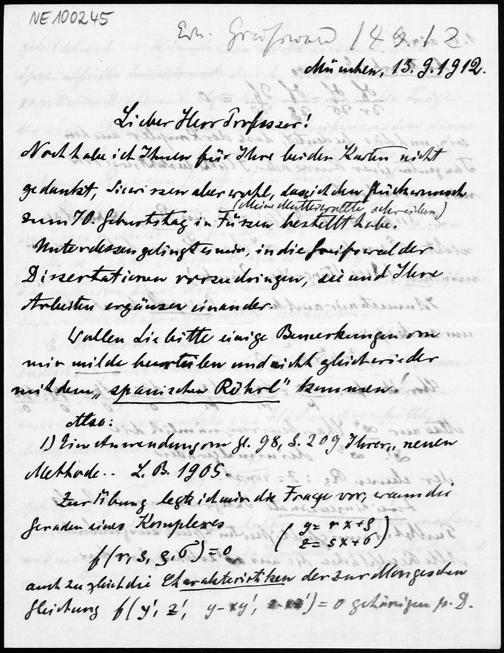 NE100245
Erh. Greifswald 14 9 12
München, 13.9.1912.
Lieber Herr Professor!
Noch habe ich Ihnen für Ihre beiden Karten nicht
gedankt, Sie wissen aber wohl, dass ich den Glückwunsch
(Meine Mutter wollte schreiben)
zum 70. Geburtstag in Füssen bestellt habe.
Unterdessen gelingt es mir, in die
Dissertationen vorzudringen, sie und Ihre
Arbeiten ergänzen einander.
Wollen Sie bitte einige Bemerkungen von
mir milde beurteilen und nicht gleich wieder
mit dem „spanischen Röhrl" kommen.
Also:
1) Eine Anwendung von gl. 98, S. 209 Ihrer „neuen
Methode.. L. B. 1905.
Zur Übung legte ich mir die Frage vor, wann die
Geraden eines Komplexes (y = rx+ρ
z = sx+σ)
f(r, s, ρ, σ) = 0
auch zugleich die Charakteristiken der zur Mongeschen
Gleichung f(y', z', y-xy', z-xz') = 0 gehörigen p. D.